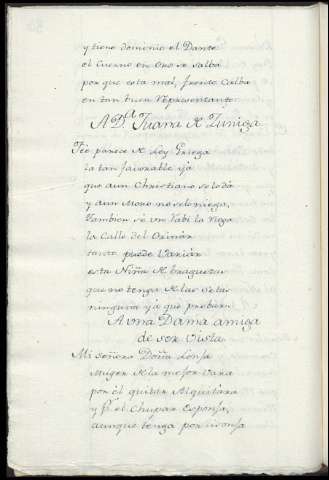 y tiene dominio el Dante
el Cuerno en Oro se salba
por que esta mal, frente Calba
en tan buen Representante
A Dª Juana de Zuñiga
Fee parece de Ley Griega
la tan favorable ya
que a un Christiano se lo dá
y a un Moro no se lo niega,
tambien si un Rabi la Ruega
la Calle del Orinár
tanto puede Variár
esta Niña de braguetas
que no tenga de las setas
ninguna ya que probar
A una Dama amiga
de ser vista
Mi Señora Doña
Muger de la mejor Vara
por el quitar Alquitara
y pr el Chupar Esponja,
aunque tenga por lisonja